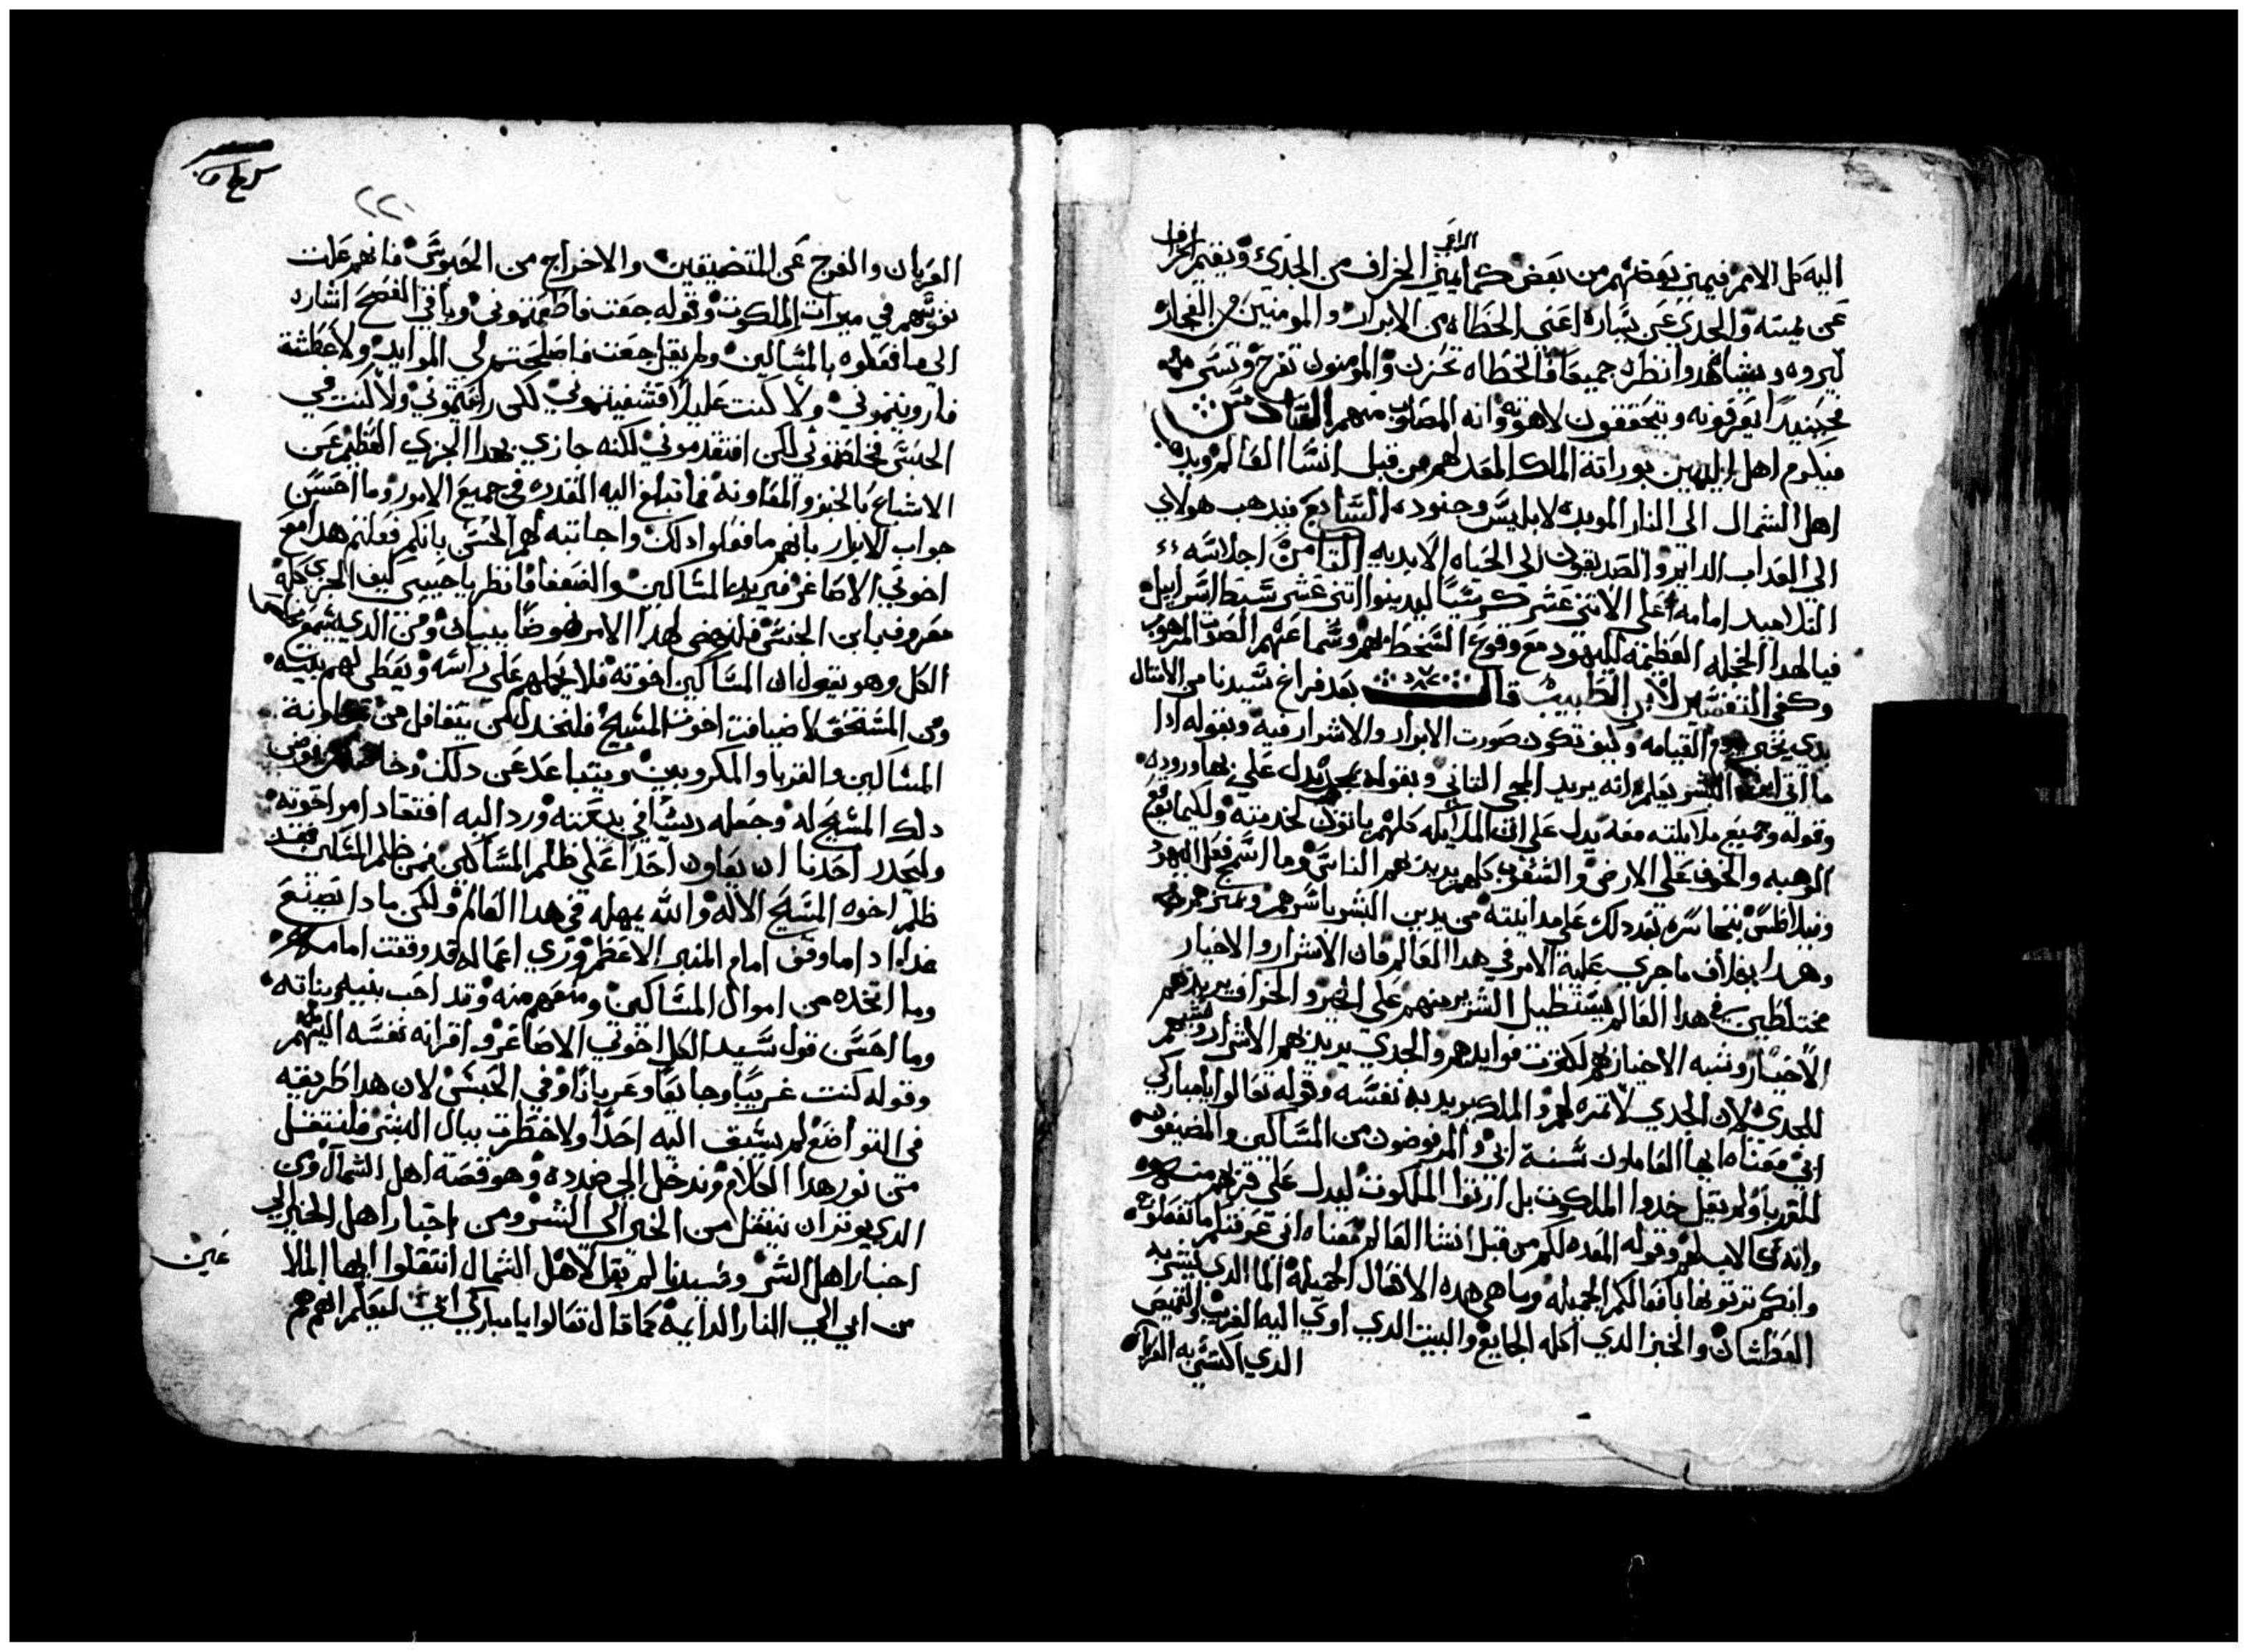 الراعي
اليه كل الامم فيميز بعضهم من بعض كما يميز الخراف من الجدي ويقيم الخراف
عن يمينه والجدي عن يساره اعني الخطاه من الابرار والمومنين من الفجار
ليروه ويشاهدوا نظره جميعا فالخطاه تحزن والمومنون تفرح وتسر
فحينيدا يعرفونه ويتحققون لاهوته وانه المصلوب منهم السادس
فيكرم اهل اليمين بوراتة الملك المعد لهم من قبل انشا العالم ويبده
اهل الشمال الى النار الموبده لابليس وجنوده السابع فيدهب هولاي
الي العداب الدايم والصديقون الي الحياه الابديه التامن اجلاسه
التلاميد امامه اعلى الاتني عشر كرسيا ليدينوا اتني عشر سبط اسراييل
فيالهدا الخجله العظيمه لليهود مع وقوع السخط بهم وسماعهم الصوت المرهوب
وكفي التفسير لابن الطيب قال بعد فراغ سيدنا من الامتال
بدي يخبر بيوم القيامه وكيف تكون صورت الابرار والاشرار فيه وبقوله ادا
ما اتى ابن البشر يعلم انه يريد المجي التاني وبقوله بمجده يدل علي بها وروده
وقوله وجميع ملايكته معه يدل على ان الملايكه كلهم ياتون لخدمته ولكيما يقع
الرهبه والخوف على الارض والشعوب كلهم يريد بهم الناس وما اسمج فعل اليهود
وفيلاطس بتجاسره بعد دلك على مداينته من يدين البشر باسرهم ويميزهم
وهدا بخلاف ما جري عليه الامر في هدا العالم فان الاشرار والاخيار
مختلطين في هدا العالم يستطيل الشرير منهم على الخير والخراف يريد بهم
الاخيار وشبه الاخيار بهم لكثرت فوايدهم والجدي يريد بهم الاشرار وشبههم
للجدي لان الجدي لا تمره لهم والملك يريد به نفسه وقوله تعالوا يا مباركي
ابي معناه ايها العاملون سنة ابي والمرفوضون من المساكين والمضيفون
للغربا ولم يقل خدوا الملكوت بل ارتوا الملكوت ليدل على قربهم منه
وانه كالاب لهم وقوله المعده لكم من قبل انشا العالم معناه اني عرفت ما تفعلون
وانكم ترتونها بافعالكم الجميله وما هي هده الافعال الجميله الما الدي يشربه
العطشان والخبز الدي اكله الجايع والبيت الدي اوي اليه الغريب والقميص
الدي اكتسي به العريان
٢٢٠
العريان والفرج عن المتضيقين والاخراج من الحبوس فانهم علت
توريتهم في ميرات الملكوت وقوله جعت فاطعمتموني وباقي الفصح اشاره
الي ما فعلوه بالمساكين ولم يقل جعت فاصلحتم لي الموايد ولا عطشة
فارويتموني ولا كنت عليلا فشفيتموني لكن راعيتموني ولا كنت في
الحبس فخلصتموني لكن افتقدتموني لكنه جازي بهدا الجزي العظيم عن
الاشباع بالخبز والمعاونه فما تبلغ اليه القدره في جميع الامور وما احسن
جواب الابرار بانهم ما فعلوا دلك واجابته لهم الحسن بانكم فعلتم هدا مع
اخوتي الاصاغر فيريد المساكين والضعفا فانظر يا حبيبي كيف الخزي كله
معروف بابن الجنس فلنهض لهدا الامر نهوضا ببيان ومن الدي يسمع
الكل وهو يقول ان المساكين اخوته فلا يحملهم على راسه ويعطي لهم بيته
ومن المستحق لاضيافت اخوت المسيح فليخدر لمن يتغافل من معاونة
المساكين والغربا والمكروبين ويتباعد عن دلك
دلك المسيح له وجعله رييسا في بيعته ورد اليه افتقاد امر اخوته
وليحدر احدنا ان يعاون احدا على ظلم المساكين فمن ظلم المساكين فقد
ظلم اخوه المسيح الاله والله يمهله في هدا العالم ولكن مادا يصنع
غدا ادا ما وقف امام المنبر الاعظم وراي اعماله قد وقفت امامه
وما اتخده من اموال المساكين ومنعهم منه وقد احب بنيه وبناته
وما احسن قول سيد الكل اخوتي الاصاغر واقرانه نفسه اليهم
وقوله كنت غريبا وجايعا وعريانا وفي الحبس لان هدا طريقه
في التواضع لم يسبق اليه احدا ولا خطرت ببال البشر فلننتقل
من نور هدا الكلام وندخل الي ضدده وهو قصة اهل الشمال ومن
الدي يوتر ان ينتقل من الخير الى الشر ومن اختبار اهل الخير الي
اختبار اهل الشر وسيدنا لم يقل لاهل الشمال انتقلوا ايها الملا
عين
من ابي الي النار الدايمه كما قال تعالوا يا مباركي ابي ليعلم انهم هم